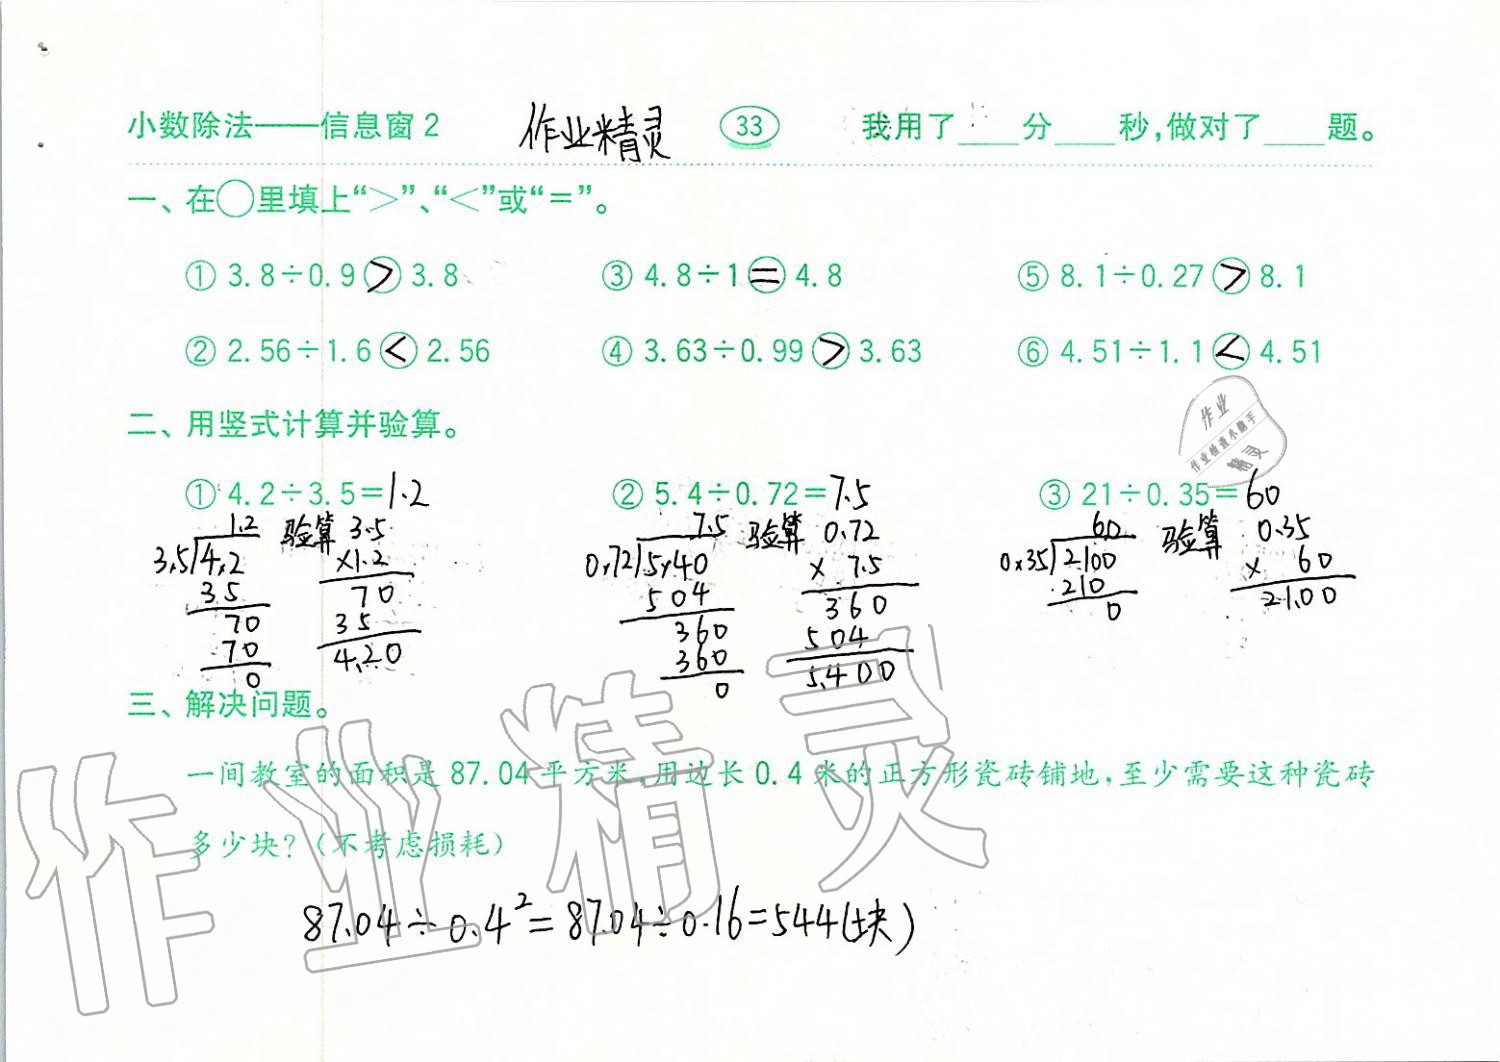 小数除法——信息窗2 作业精灵 33 我用了____分____秒,做对了____题。
一、在○里填上“>”、“<”或“=”。
① 3.8÷0.9>3.8 ③ 4.8÷1=4.8 ⑤ 8.1÷0.27>8.1
② 2.56÷1.6<2.56 ④ 3.63÷0.99>3.63 ⑥ 4.51÷1.1<4.51
作业
作业检查小助手
精灵
二、用竖式计算并验算。
① 4.2÷3.5=1.2 ② 5.4÷0.72=7.5 ③ 21÷0.35=60
1.2 验算 3.5 7.5 验算 0.72 60 验算 0.35
3.5 4.2 ×1.2 0.72 5.40 × 7.5 0.35 2100 × 60
35 70 504 360 210 21.00
70 35 360 504 0
70 4.20 360 5.400
0 0
三、解决问题。
一间教室的面积是87.04平方米,用边长0.4米的正方形瓷砖铺地,至少需要这种瓷砖
多少块?(不考虑损耗)
87.04÷0.4²=87.04÷0.16=544(块)
作业精灵